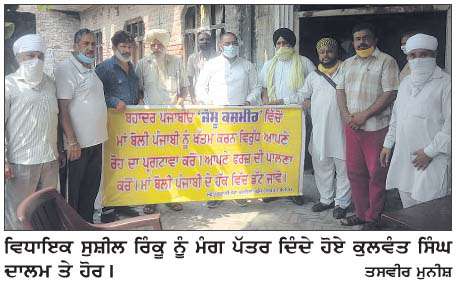 ਬਹਾਦਰ ਪੰਜਾਬੀਓ 'ਜੰਮੂ ਕਸ਼ਮੀਰ' ਵਿੱਚੋਂ
ਮਾਂ ਬੋਲੀ ਪੰਜਾਬੀ ਨੂੰ ਖਤਮ ਕਰਨ ਵਿਰੁੱਧ ਆਪਣੇ
ਰੋਹ ਦਾ ਪ੍ਰਗਟਾਵਾ ਕਰੋ। ਆਪਣੇ ਫਰਜ਼ ਦੀ ਪਾਲਣਾ
ਕਰੋ। ਮਾਂ ਬੋਲੀ ਪੰਜਾਬੀ ਦੇ ਹੱਕ ਵਿੱਚ ਡੱਟ ਜਾਵੋ।
ਵਿਧਾਇਕ ਸੁਸ਼ੀਲ ਰਿੰਕੂ ਨੂੰ ਮੰਗ ਪੱਤਰ ਦਿੰਦੇ ਹੋਏ ਕੁਲਵੰਤ ਸਿੰਘ
ਦਾਲਮ ਤੇ ਹੋਰ।
ਤਸਵੀਰ ਮੁਨੀਸ਼